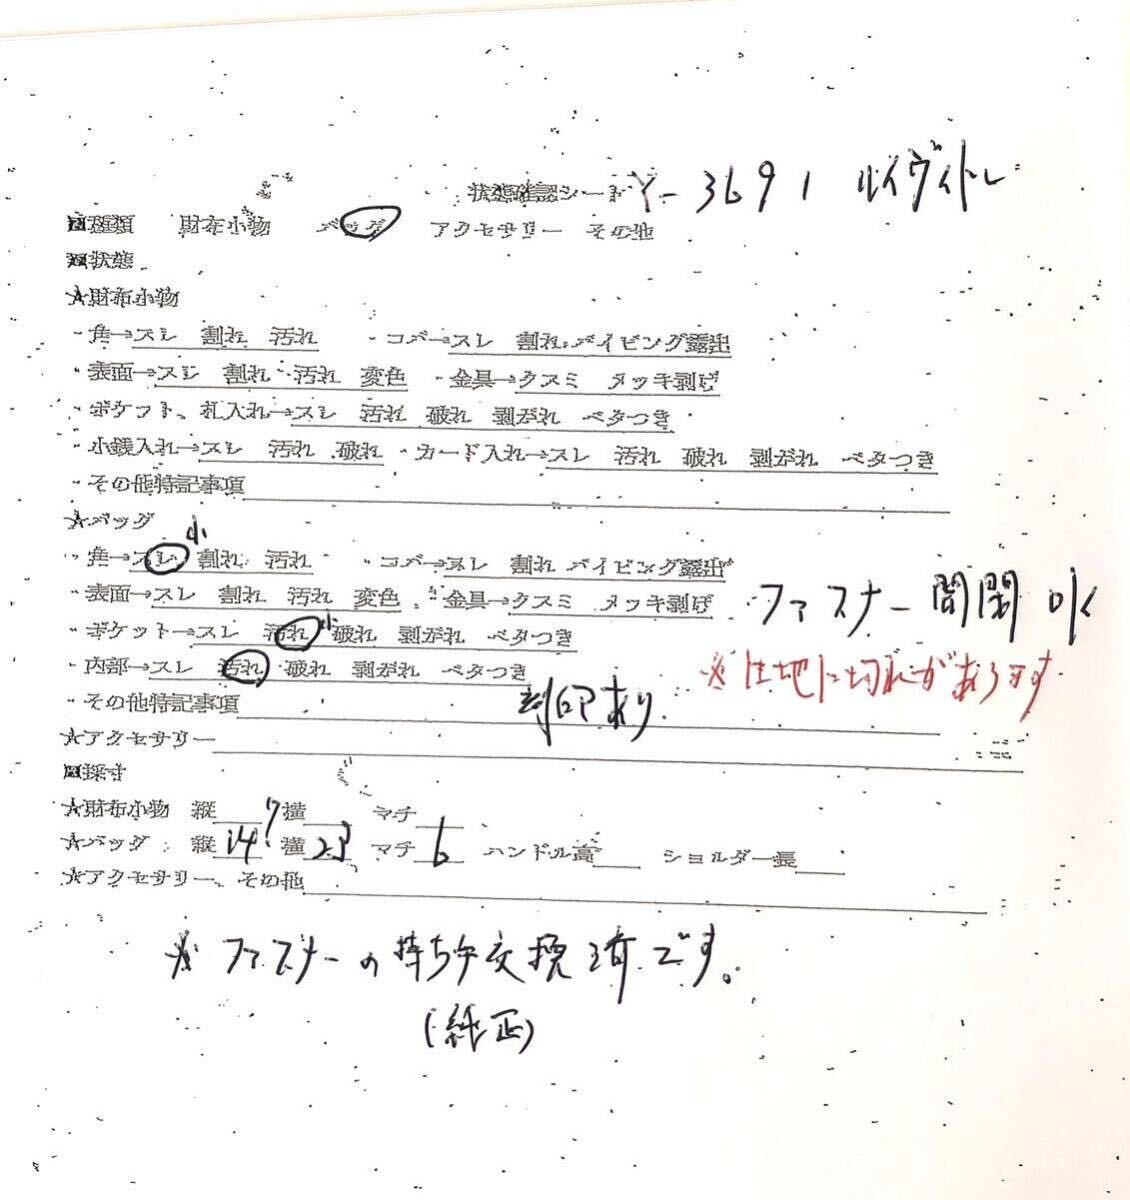 状態確認シート Y-3691 ルイヴィトン
■種類 財布小物 バッグ アクセサリー その他
■状態
★財布小物
・角→スレ 割れ 汚れ ・コバ→スレ 割れ パイピング露出
・表面→スレ 割れ 汚れ 変色 ・金具→クスミ メッキ剥げ
・ポケット、札入れ→スレ 汚れ 破れ 剥がれ ベタつき
・小銭入れ→スレ 汚れ 破れ ・カード入れ→スレ 汚れ 破れ 剥がれ ベタつき
・その他特記事項
★バッグ
小
・角→スレ 割れ 汚れ ・コバ→スレ 割れ パイピング露出
・表面→スレ 割れ 汚れ 変色 ・金具→クスミ メッキ剥げ ファスナー開閉OK
・ポケット→スレ 汚れ 小 破れ 剥がれ ベタつき
・内部→スレ 汚れ 破れ 剥がれ ベタつき ※生地に切れがあります
・その他特記事項 刻印あり
★アクセサリー
■採寸
★財布小物 縦 横 マチ
★バッグ 縦 14.7 横 23 マチ 6 ハンドル高 ショルダー長
★アクセサリー、その他
※ファスナーの持ち手交換済です。
(純正)